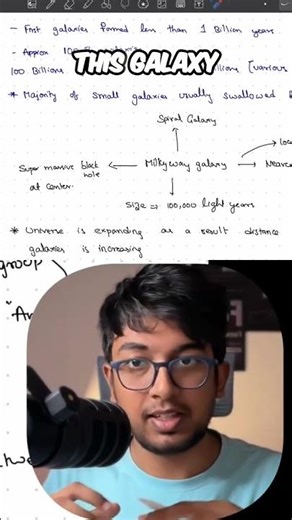 - First galaxies formed less than 1 Billion years
- Approx
THIS GALAXY
100 Billions
* Majority of small galaxies usually swallowed
Spiral Galaxy
Super massive black hole at center.
Milkyway galaxy
Size => 100,000 light years
* Universe is expanding as a result distance
galaxies is increasing
group